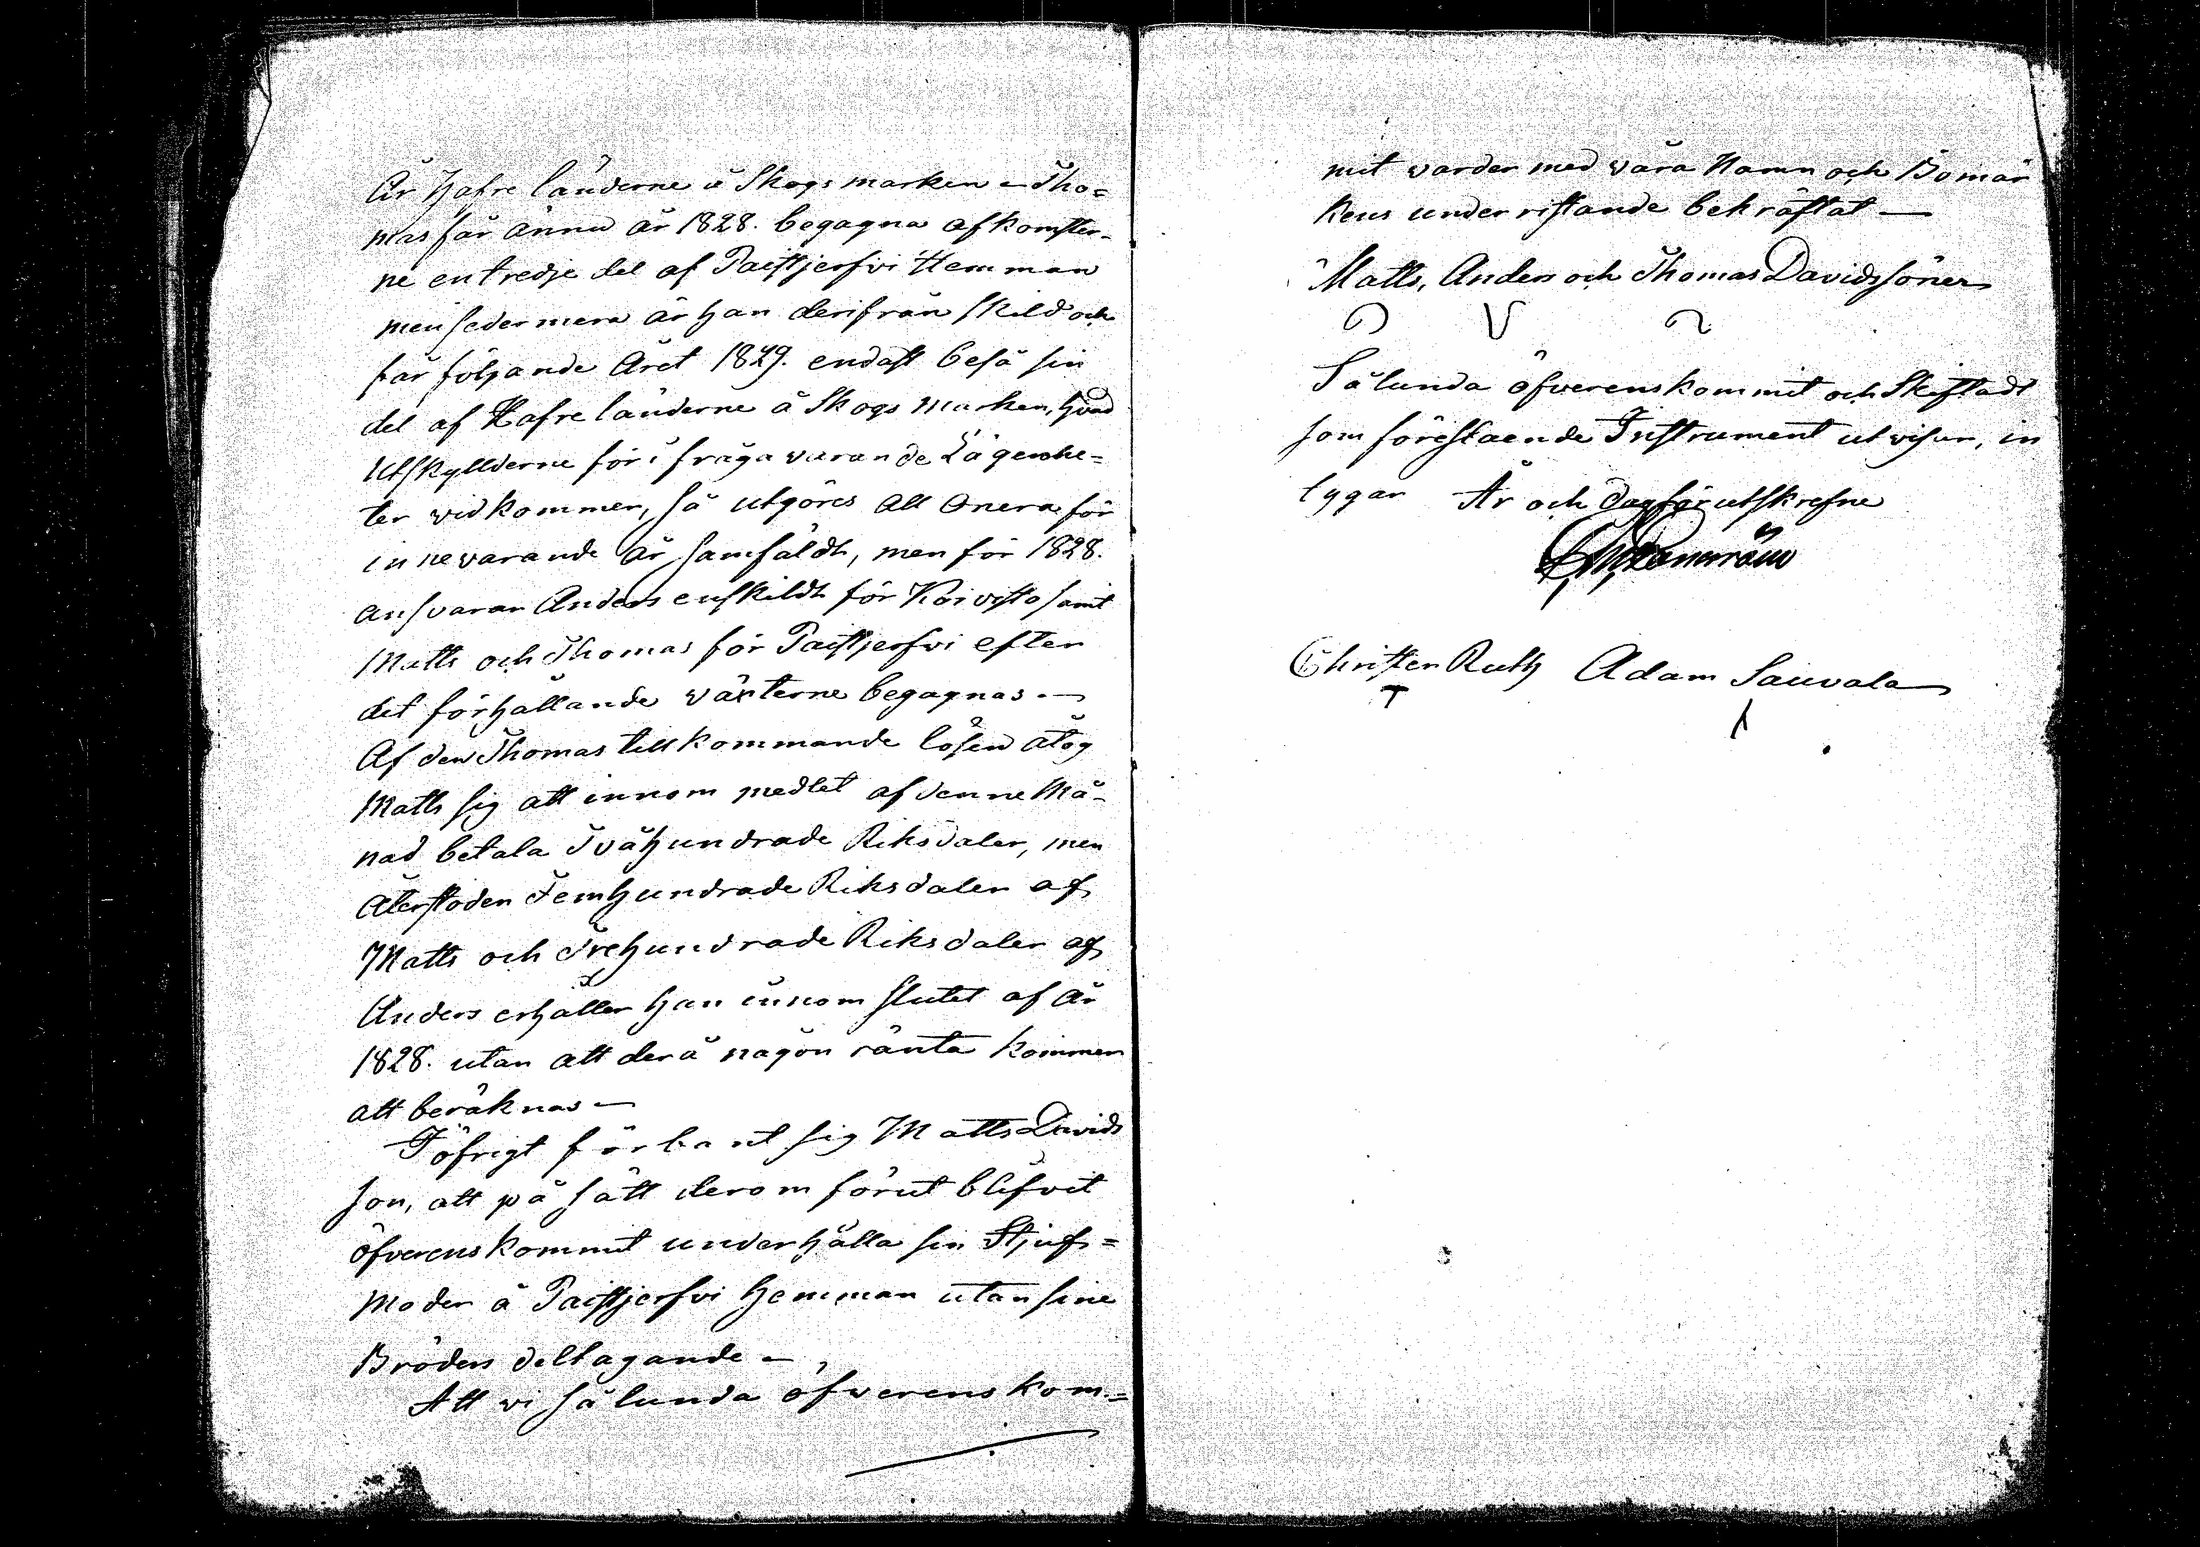 År Hafre länderne å Skogsmarken — Tho=
mas får ännu år 1828. begagna afkomster-
ne en tredje del af Paistjerfvi Hemman
men sedermera är han derifrån skild och
får följande Året 1829. endast beså sin
del af Hafre länderne å Skogs marken, hvad
Utskyllderne för i fråga varande Lägenhe=
ter vidkommer, så utgöres all Onera för
innevarande år samfäldt, men för 1828.
ansvarar Anders enskildt för Koivisto samt
Matts och Thomas för Paistjerfvi efter
det förhållande växterne begagnas. —
Af den Thomas tillkommande lösen åtog
Matts sig att innom medlet af denne Må-
nad betala Tvåhundrade Riksdaler, men
Återstoden Femhundrade Riksdaler af
Matts och Trehundrade Riksdaler af
Anders erhåller han innom slutet af år
1828. utan att derå någon ränta kommer
att beräknas —
I öfrigt förbant sig Matts Davids
son, att på sätt derom förut blifvit
öfverenskommit underhålla sin Stjuf=
moder å Paistjerfvi Hemman utan sine
Bröders deltagande —
Att vi sålunda öfverenskom=
mit varder med våra Namn och Bomär
kens underristande bekräftat —
Matts, Anders och Thomas Davidssöner
Sålunda öfverenskommit och Skiftadt
som förestående Instrument utvisar, in
tygar År och dag förutskrefne
Christer Ruth Adam Sauvala